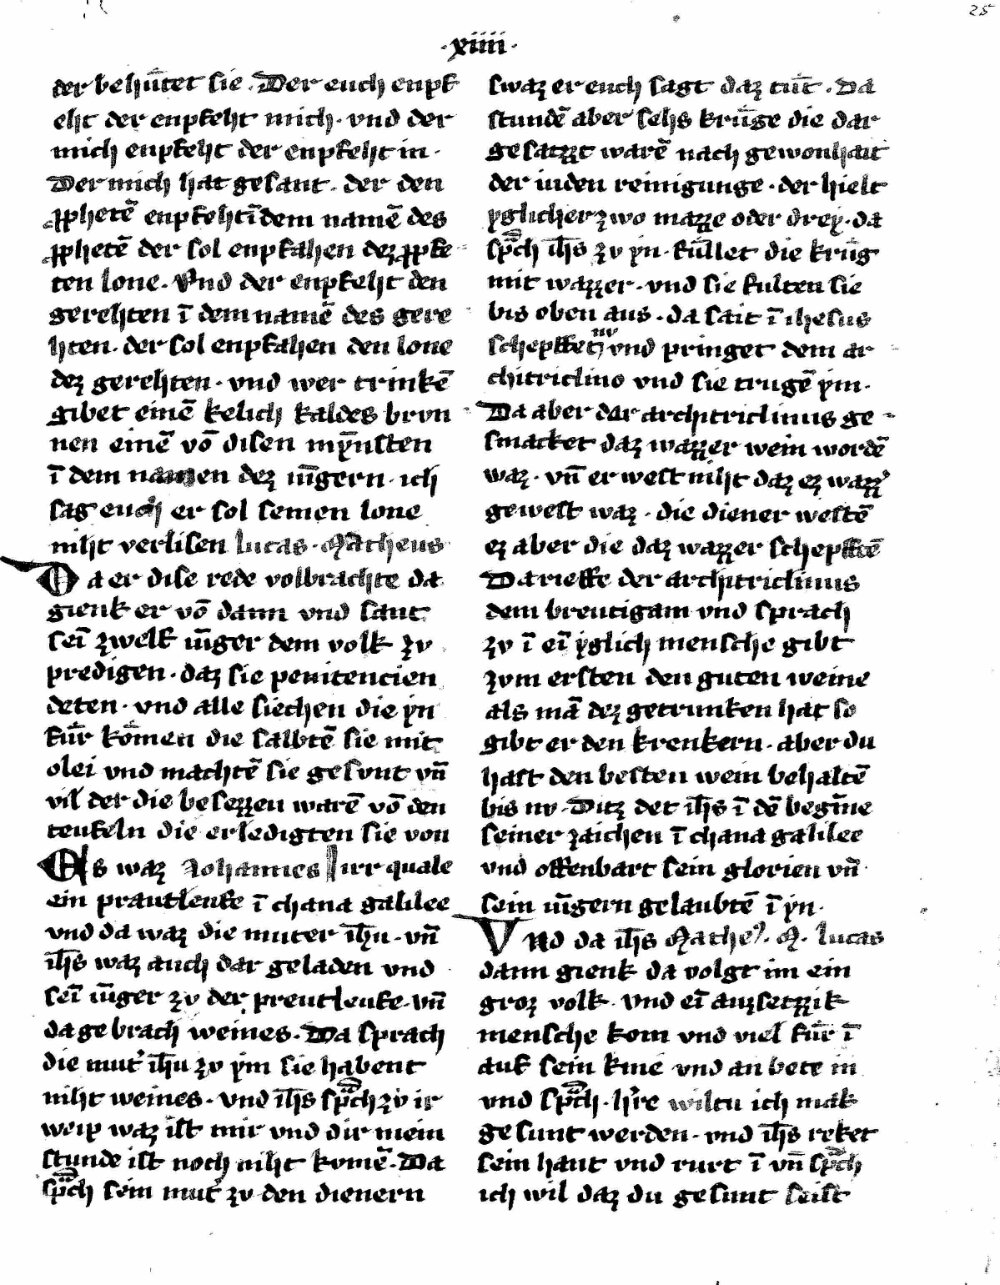 25
·xiiii·
der behůtet sie. Der euch enpf
eht der enpfeht mich. vnd der
mich enpfeht der enpfeht in.
Der mich hat gesant. der den
ꝓphetē enpfeht ī dem namē des
ꝓphetē der sol enpfahen dez ꝓphe
ten lone. Vnd der enpfeht den
gerehten ī dem namē des gere
hten. der sol enpfahen den lone
dez gerehten. vnd wer trinkē
gibet einē kelich kaldes brun
nen einē vō disen mynsten
ī dem namen dez iūgern. ich
sag euch er sol seinen lone
niht verlisen lucas. Matheus
Da er dise rede volbrachte da
gienk er vō dann vnd sant
sei zwelf iūger dem volk zv
predigen. daz sie penitencien
deten. vnd alle siechen die yn
fůr kōmen die salbtē sie mit
olei vnd machtē sie gesunt vn̄
vil der die besezzen warē vō den
teufeln die erledigten sie von
Es waz Johannes Irr quale
ein prautleufe ī chana galilee
vnd da waz die muter ih̄u. vn̄
ih̄s waz auch dar geladen vnd
sei iūger zv der preutleufe. vn̄
da gebrach weines. Da sprach
die mut' ih̄u zv ym sie habent
niht weines. vnd ih̄s sp̄ch zv ir
weip waz ist mir vnd dir mein
stunde ist noch niht komē. Da
sp̄ch sein mut' zv den dienern
swaz er euch sagt daz tůt. Da
stundē aber sehs krůge die dar
gesatzt warē nach gewonhait
der iuden reinigunge. der hielt
yglicher zwo mazze oder drey. da
sp̄ch ih̄s zv yn. fůllet die krůg
mit wazzer. vnd sie fulten sie
bis oben aus. da sait ī ihesus
schepffet nv vnd pringet dem ar
chitriclino vnd sie trugē ym.
Da aber der architriclinus ge
smacket daz wazzer wein wordē
waz. vn̄ er west niht daz ez wazz'
gewest waz. die diener westē
ez aber die daz wazzer schepftē
Da rieffe der architriclinus
dem breutigam vnd sprach
zv ī ei yglich mensche gibt
zum ersten den guten weine
als mā dez getrunken hat so
gibt er den krenkern. aber du
hast den besten wein behaltē
bis nv. Ditz det ih̄s ī dē begīne
seiner zaichen ī chana galilee
vnd offenbart sein glorien vn̄
sein iūgern gelaubtē ī yn.
Vnd da ih̄s Mathe'. M. lucas
dann gienk da volgt im ein
groz volk. vnd ei auzsetzzik
mensche kom vnd viel fůr ī
auf sein knie vnd an bete in
vnd sp̄ch. h're wiltu ich mak
gesunt werden. vnd ih̄s reket
sein hant vnd rurt ī vn̄ sp̄ch
ich wil daz du gesunt seist